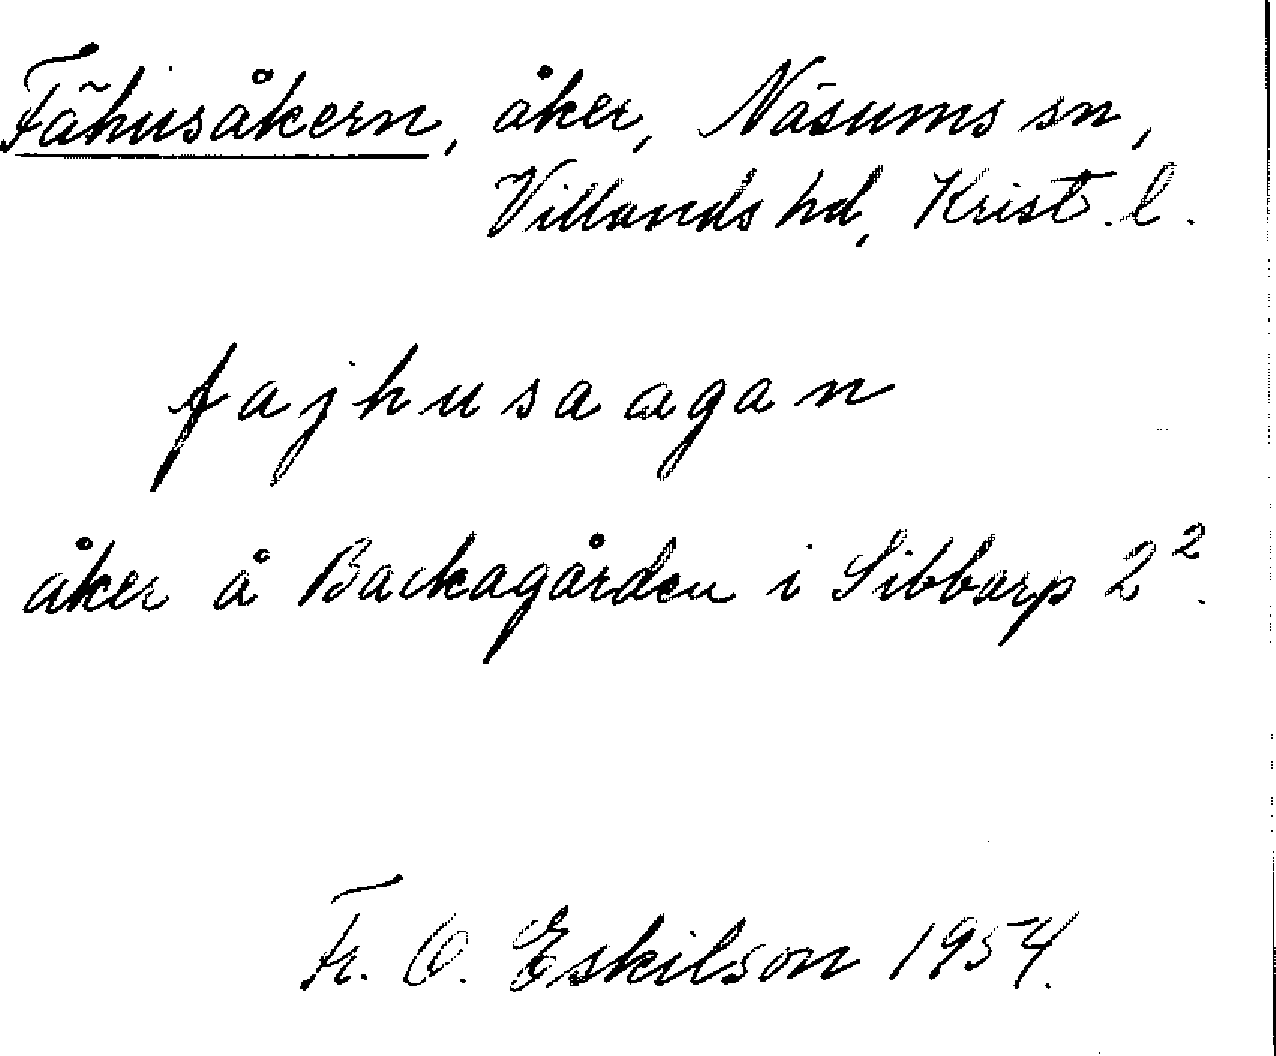 Fähusåkern, åker, Näsums sn,
Villands hd, Krist. l.
fajhusaagan
åker å Backagården i Sibbarp 2².
Fr. O. Eskilson 1954.